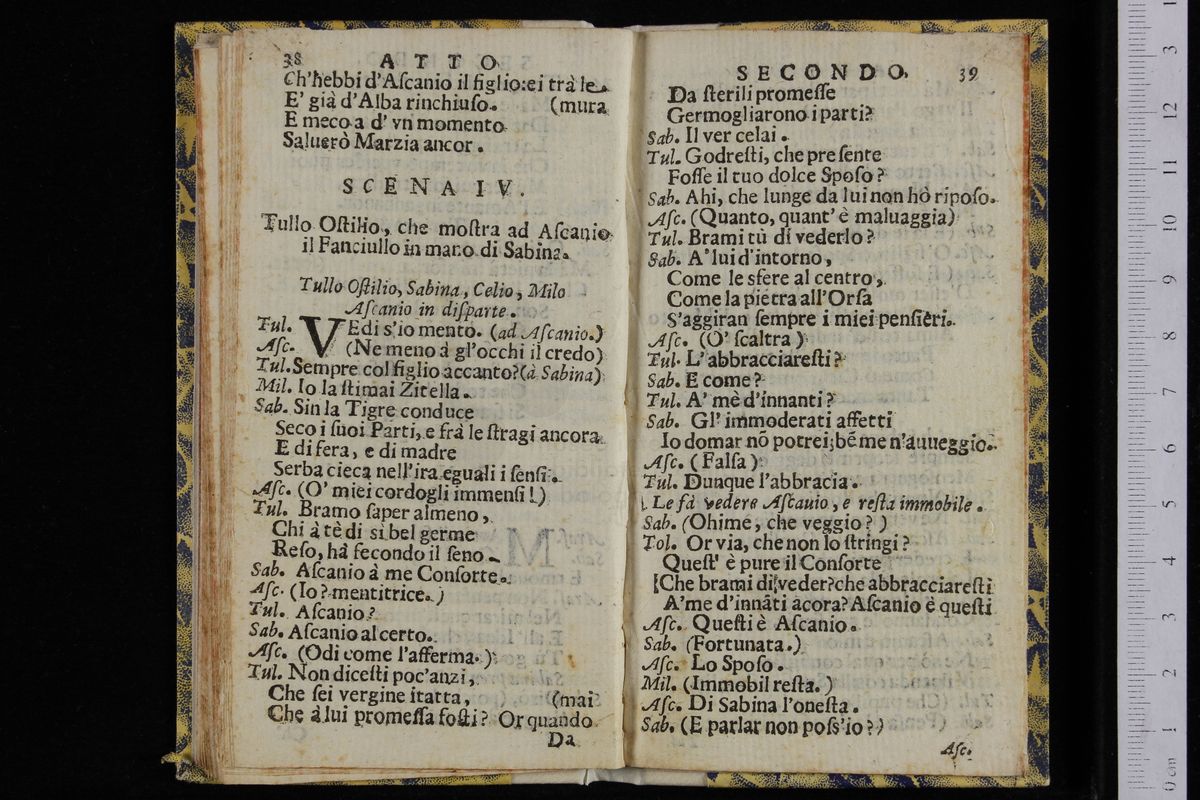 38 ATTO
Ch'hebbi d'Aſcanio il figlio: ei trà le
E' già d'Alba rinchiuſo. (mura
E meco a d' vn momento
Saluerò Marzia ancor.
SCENA IV.
Tullo Oſtilio, che moſtra ad Aſcanio
il Fanciullo in mano di Sabina.
Tullo Oſtilio, Sabina, Celio, Milo
Aſcanio in diſparte.
Tul. VEdi s'io mento. (ad Aſcanio.)
Aſc. (Ne meno à gl'occhi il credo)
Tul. Sempre col figlio accanto? (à Sabina)
Mil. Io la ſtimai Zitella.
Sab. Sin la Tigre conduce
Seco i ſuoi Parti, e frà le ſtragi ancora
E di fera, e di madre
Serba cieca nell'ira eguali i ſenſi.
Aſc. (O' miei cordogli immenſi!)
Tul. Bramo ſaper almeno,
Chi à tè di sì bel germe
Reſo, hà fecondo il ſeno.
Sab. Aſcanio à me Conſorte.
Aſc. (Io? mentitrice.)
Tul. Aſcanio?
Sab. Aſcanio al certo.
Aſc. (Odi come l'afferma.)
Tul. Non diceſti poc'anzi,
Che ſei vergine itatta, (mai
Che à lui promeſſa foſti? Or quando
Da
SECONDO. 39
Da ſterili promeſſe
Germogliarono i parti?
Sab. Il ver celai.
Tul. Godreſti, che preſente
Foſſe il tuo dolce Spoſo?
Sab. Ahi, che lunge da lui non hò ripoſo.
Aſc. (Quanto, quant' è maluaggia)
Tul. Brami tù di vederlo?
Sab. A' lui d'intorno,
Come le sfere al centro,
Come la pietra all'Orſa
S'aggiran ſempre i miei penſieri.
Aſc. (O' ſcaltra)
Tul. L'abbracciareſti?
Sab. E come?
Tul. A' mè d'innanti?
Sab. Gl' immoderati affetti
Io domar nõ potrei; bẽ me n'auueggio.
Aſc. (Falſa)
Tul. Dunque l'abbracia.
Le fà vedere Aſcauio, e reſta immobile.
Sab. (Ohime, che veggio?)
Tol. Or via, che non lo ſtringi?
Queſt' è pure il Conſorte
Che brami di veder? che abbracciareſti
A'me d'innãti ãcora? Aſcanio è queſti
Aſc. Queſti è Aſcanio.
Sab. (Fortunata.)
Aſc. Lo Spoſo.
Mil. (Immobil reſta.)
Aſc. Di Sabina l'oneſta.
Sab. (E parlar non poſs'io?)
Aſc.